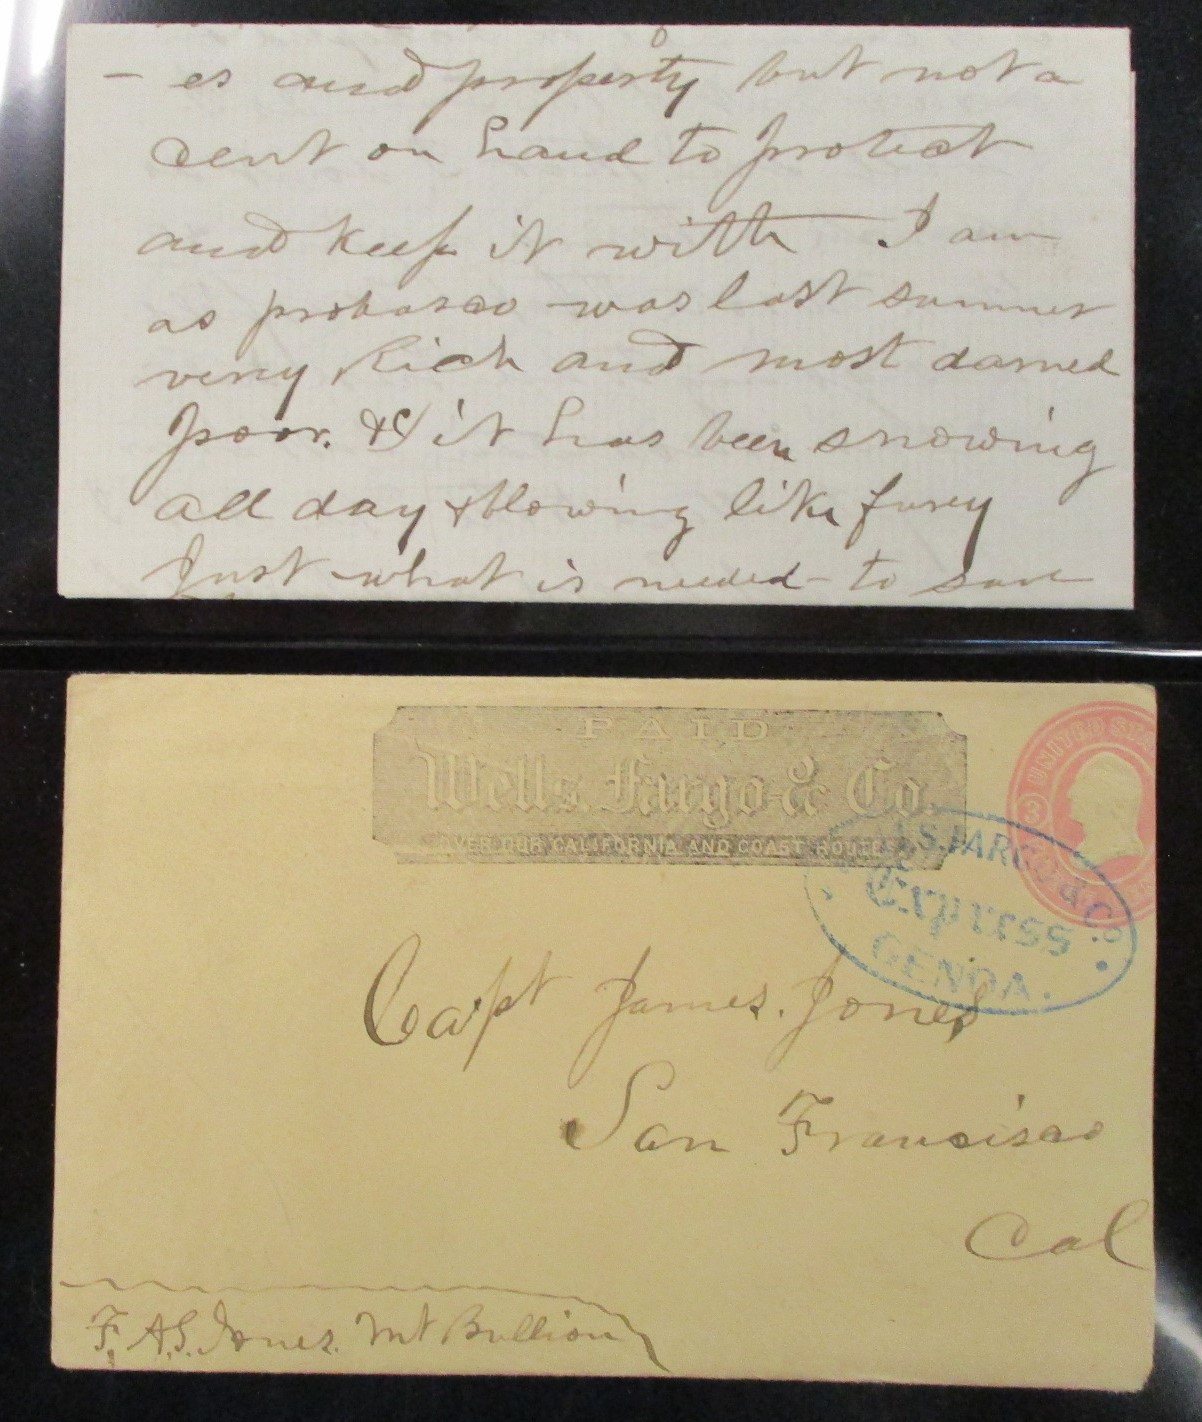 - es and property but not a
cent on hand to protect
and keep it with I am
as probasco was last summer
very Rich and most darned
poor. &c/ it has been snowing
all day & blowing like furey
Just what is needed to save
PAID
Wells, Fargo & Co.
OVER OUR CALIFORNIA AND COAST ROUTES
UNITED STA
3
LS, FARGO & Co.
Express
GENOA.
Capt James. Jones
San Francisco
Cal
F. A. S. Jones. Mt Bullion